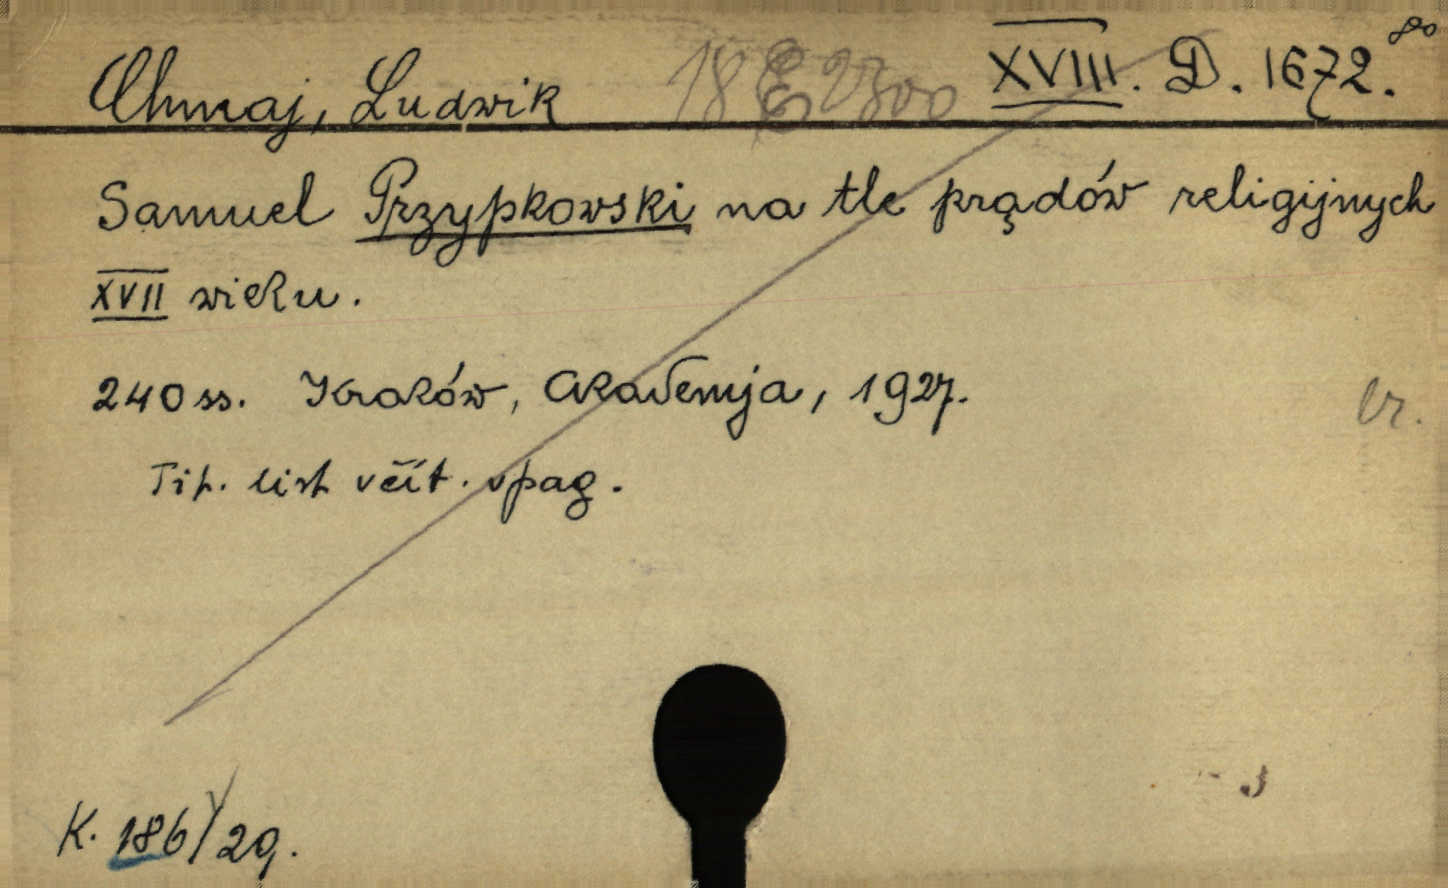 Chmaj, Ludwik 18 E 2300 XVIII. D. 1672. 8o
Samuel Przypkowski na tle prądów religijnych
XVII wieku.
240 ss. Kraków, Akademja, 1927. br.
Tit. list včít. v pag.
K. 186/29.